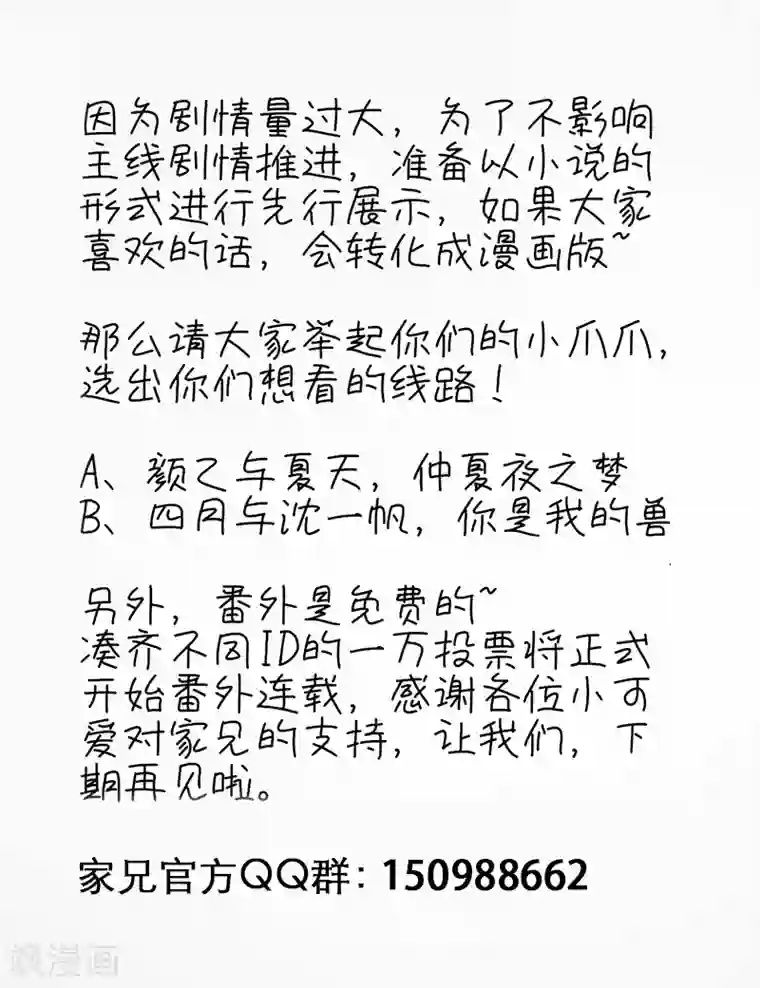 因为剧情量过大，为了不影响
主线剧情推进，准备以小说的
形式进行先行展示，如果大家
喜欢的话，会转化成漫画版~
那么请大家举起你们的小爪爪，
选出你们想看的线路！
A、颜乙与夏天，仲夏夜之梦
B、四月与沈一帆，你是我的兽
另外，番外是免费的~
凑齐不同ID的一万投票将正式
开始番外连载，感谢各位小可
爱对家兄的支持，让我们，下
期再见啦。
家兄官方QQ群：150988662
漫画